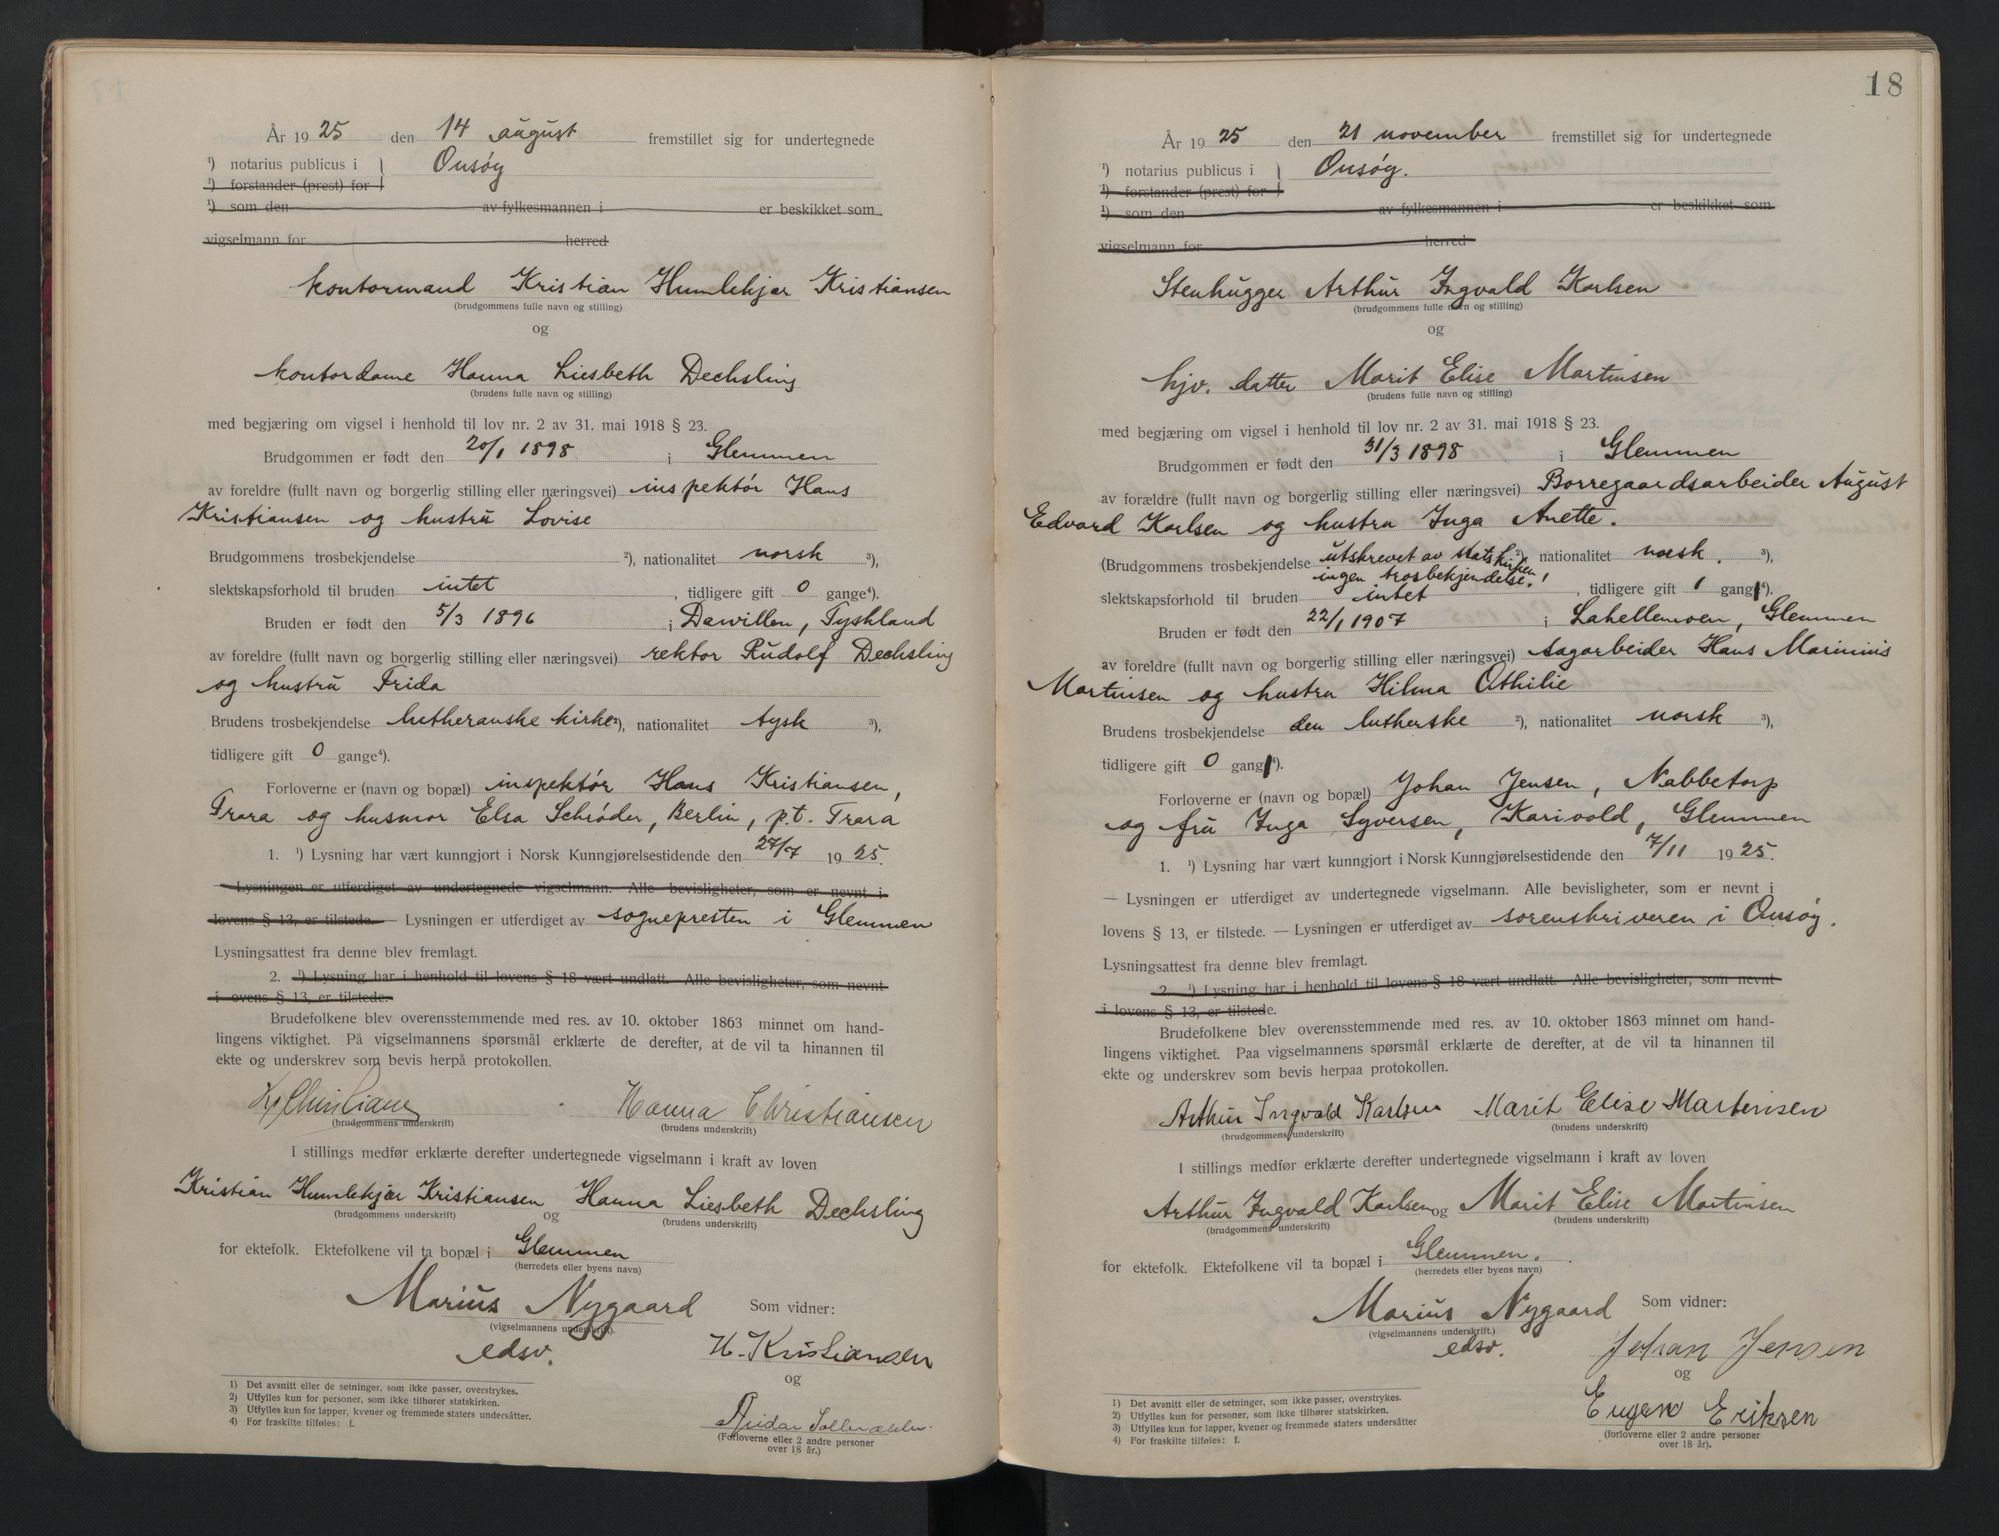 År 1925 den 14 august fremstillet sig for undertegnede
¹) notarius publicus i } Onsøy
¹) forstander (prest) for
¹) som den av fylkesmannen i er beskikket som
vigselmann for herred
kontormand Kristian Humlekjær Kristiansen
(brudgommens fulle navn og stilling)
og
kontordame Hanna Liesbeth Dechsling
(brudens fulle navn og stilling)
med begjæring om vigsel i henhold til lov nr. 2 av 31. mai 1918 § 23.
Brudgommen er født den 20/1 1898 i Glemmen
av foreldre (fullt navn og borgerlig stilling eller næringsvei) inspektør Hans
Kristiansen og hustru Lovise
Brudgommens trosbekjendelse ²), nationalitet norsk ³),
slektskapsforhold til bruden intet, tidligere gift 0 gange⁴).
Bruden er født den 5/3 1896 i Dawillen, Tyskland
av foreldre (fullt navn og borgerlig stilling eller næringsvei) rektor Rudolf Dechsling
og hustru Frida
Brudens trosbekjendelse lutheranske kirke ²), nationalitet tysk ³),
tidligere gift 0 gange⁴).
Forloverne er (navn og bopæl) inspektør Hans Kristiansen,
Trara og husmor Elsa Schrøder, Berlin, p.t. Trara
1. ¹) Lysning har vært kunngjort i Norsk Kunngjørelsestidende den 27/7 1925.
— Lysningen er utferdiget av undertegnede vigselmann. Alle bevisligheter, som er nevnt i
lovens § 13, er tilstede. — Lysningen er utferdiget av sognepresten i Glemmen
Lysningsattest fra denne blev fremlagt.
2. ¹) Lysning har i henhold til lovens § 18 vært undlatt. Alle bevisligheter, som nevnt
i ovens § 13, er tilstede.
Brudefolkene blev overensstemmende med res. av 10. oktober 1863 minnet om hand-
lingens viktighet. På vigselmannens spørsmål erklærte de derefter, at de vil ta hinannen til
ekte og underskrev som bevis herpå protokollen.
Hanna Christiansen
(brudgommens underskrift) (brudens underskrift)
I stillings medfør erklærte derefter undertegnede vigselmann i kraft av loven
Kristian Humlekjær Kristiansen og Hanna Liesbeth Dechsling
(brudgommens underskrift) (brudens underskrift)
for ektefolk. Ektefolkene vil ta bopæl i Glemmen
(herredets eller byens navn)
Marius Nygaard Som vidner:
(vigselmannens underskrift).
edsv. H. Kristiansen
og
(Forloverne eller 2 andre personer
over 18 år.)
1) Det avsnitt eller de setninger, som ikke passer, overstrykes.
2) Utfylles kun for personer, som ikke tilhører statskirken.
3) Utfylles kun for lapper, kvener og fremmede staters undersåtter.
4) For fraskilte tilføies: f.
18
År 1925 den 21 november fremstillet sig for undertegnede
¹) notarius publicus i } Onsøy.
¹) forstander (prest) for
¹) som den av fylkesmannen i er beskikket som
vigselmann for herred
Stenhugger Arthur Ingvald Karlsen
(brudgommens fulle navn og stilling)
og
hjv. datter Marit Elise Martinsen
(brudens fulle navn og stilling)
med begjæring om vigsel i henhold til lov nr. 2 av 31. mai 1918 § 23.
Brudgommen er født den 31/3 1898 i Glemmen
av forældre (fullt navn og borgerlig stilling eller næringsvei) Borregaardsarbeider August
Edvard Karlsen og hustru Inga Anette.
(Brudgommens trosbekjendelse utskrevet av statskirken ²) nationalitet norsk. ³),
ingen trosbekjendelse!
slektskapsforhold til bruden intet, tidligere gift 1 gang⁴).
Bruden er født den 22/1 1907 i Lahellemoen, Glemmen
av foreldre (fullt navn og borgerlig stilling eller næringsvei) Sagarbeider Hans Marinius
Martinsen og hustru Hilma Othilie
Brudens trosbekjendelse den lutherske ²), nationalitet norsk ³),
tidligere gift 0 gang⁴).
Forloverne er (navn og bopæl) Johan Jensen, Nabbetorp
og fru Inga Syversen, Karivold, Glemmen
1. ¹) Lysning har vært kunngjort i Norsk Kunngjørelsestidende den 7/11 1925.
— Lysningen er utferdiget av undertegnede vigselmann. Alle bevisligheter, som er nevnt i
lovens § 13, er tilstede. — Lysningen er utferdiget av sorenskriveren i Onsøy.
Lysningsattest fra denne blev fremlagt.
2. ¹) Lysning har i henhold til lovens § 18 vært undlatt. Alle bevisligheter, som nevnt
i lovens § 13, er tilstede.
Brudefolkene blev overensstemmende med res. av 10. oktober 1863 minnet om hand-
lingens viktighet. Paa vigselmannens spørsmål erklærte de derefter, at de vil ta hinannen til
ekte og underskrev som bevis herpaa protokollen.
Arthur Ingvald Karlsen Marit Elise Martinsen
(brudgommens underskrift) (brudens underskrift)
I stillings medfør erklærte derefter undertegnede vigselmann i kraft av loven
Arthur Ingvald Karlsen og Marit Elise Martinsen
(brudgommens underskrift) (brudens underskrift)
for ektefolk. Ektefolkene vil ta bopæl i Glemmen.
(herredets eller byens navn)
Marius Nygaard Som vidner:
(vigselmannens underskrift.)
edsv. Johan Jensen
og
Eugen Eriksen
(forloverne eller 2 andre personer
over 18 år).
1) Det avsnitt eller de setninger, som ikke passer, overstrykes.
2) Utfylles kun for personer, som ikke tilhører statskirken.
3) Utfylles kun for lapper, kvener og fremmede staters undersåtter
4) For fraskilte tilføies: f.